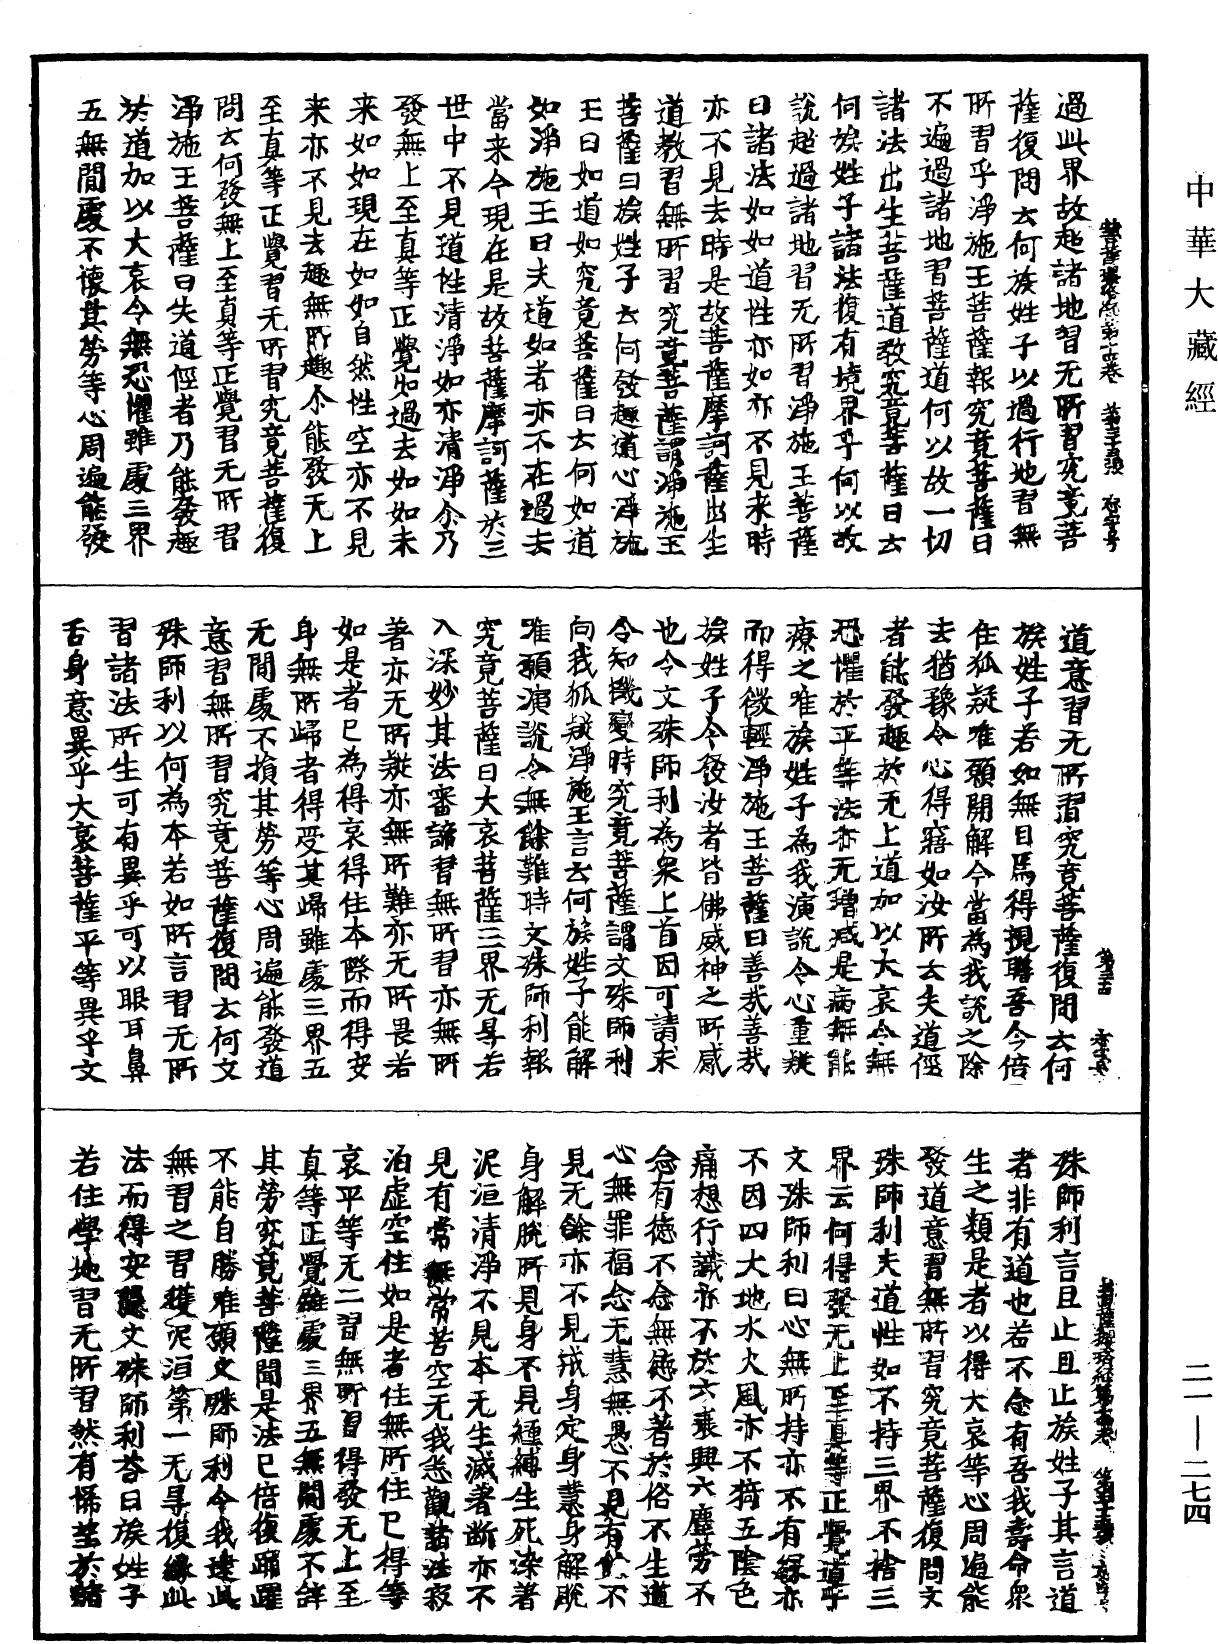 中華大藏經
過此界故超諸地習无所習究竟菩
薩復問云何族姓子以過行地習無
所習乎淨施王菩薩報究竟菩薩曰
不遍過諸地習菩薩道何以故一切
諸法出生菩薩道教究竟菩薩曰云
何族姓子諸法復有境界乎何以故
說超過諸地習无所習淨施王菩薩
曰諸法如如道性亦如亦不見来時
亦不見去時是故菩薩摩訶薩出生
道教習無所習究竟菩薩謂淨施王
菩薩曰族姓子云何發趣道心淨施
王曰如道如究竟菩薩曰云何如道
如淨施王曰夫道如者亦不在過去
當来今現在是故菩薩摩訶薩於三
世中不見道性清淨如亦清淨尒乃
發無上至真等正覺如過去如如未
来如如現在如如自然性空亦不見
来亦不見去趣無所趣尒能發无上
至真等正覺習无所習究竟菩薩復
問云何發無上至真等正覺習无所習
淨施王菩薩曰失道俓者乃能發趣
於道加以大哀令無恐懼雖處三界
五無間處不懷其勞等心周遍能發
道意習无所習究竟菩薩復問云何
族姓子若如無目馬得視瞻吾今倍
住狐疑唯願開解今當為我說之除
去猶豫令心得寤如汝所云夫道俓
者能發趣於无上道加以大哀令無
恐懼於平等法亦无增減是病無能
療之唯族姓子為我演說令心重疑
而得微輕淨施王菩薩曰善哉善哉
族姓子今發汝者皆佛威神之所感
也今文殊師利為衆上首因可請求
令知機變時究竟菩薩謂文殊師利
向我狐疑淨施王言云何族姓子能解
唯願演說令無餘難時文殊師利報
究竟菩薩曰大哀菩薩三界无㝵若
入深妙其法審諦習無所習亦無所
著亦无所疑亦無所難亦无所畏若
如是者已為得哀得住本際而得安
身無所歸者得受其歸雖處三界五
无間處不損其勞等心周遍能發道
意習無所習究竟菩薩復問云何文
殊師利以何為本若如所言習无所
習諸法所生可有異乎可以眼耳鼻
舌身意異乎大哀菩薩平等異乎文
殊師利言且止且止族姓子其言道
者非有道也若不念有吾我壽命衆
生之類是者以得大哀等心周遍能
發道意習無所習究竟菩薩復問文
殊師利夫道性如不持三界不捨三
界云何得發无上至真等正覺道乎
文殊師利曰心無所持亦不有緣亦
不因四大地水火風亦不猗五陰色
痛想行識亦不於六衰興六塵勞不
念有德不念無德不著於俗不生道
心無罪福念无慧無愚不見有餘不
見无餘亦不見戒身定身慧身解脫
身解脫所見身不見縛生死染著
泥洹清淨不見本无生滅著斷亦不
見有常無常苦空无我悉觀諸法寂
泊虛空住如是者住無所住已得等
哀平等无二習無所習得發无上至
真等正覺雖處三界五無間處不辝
其勞究竟菩薩聞是法已倍復踊躍
不能自勝唯願文殊師利令我逮此
無習之習獲泥洹第一无㝵復緣此
法而得安隱文殊師利荅曰族姓子
若住學地習无所習然有悕望於諸
二一—二七四